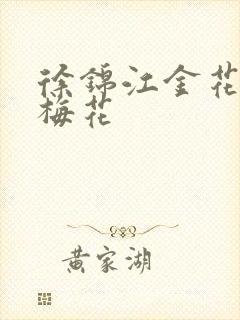 徐锦江金花
梅花
黄家湖